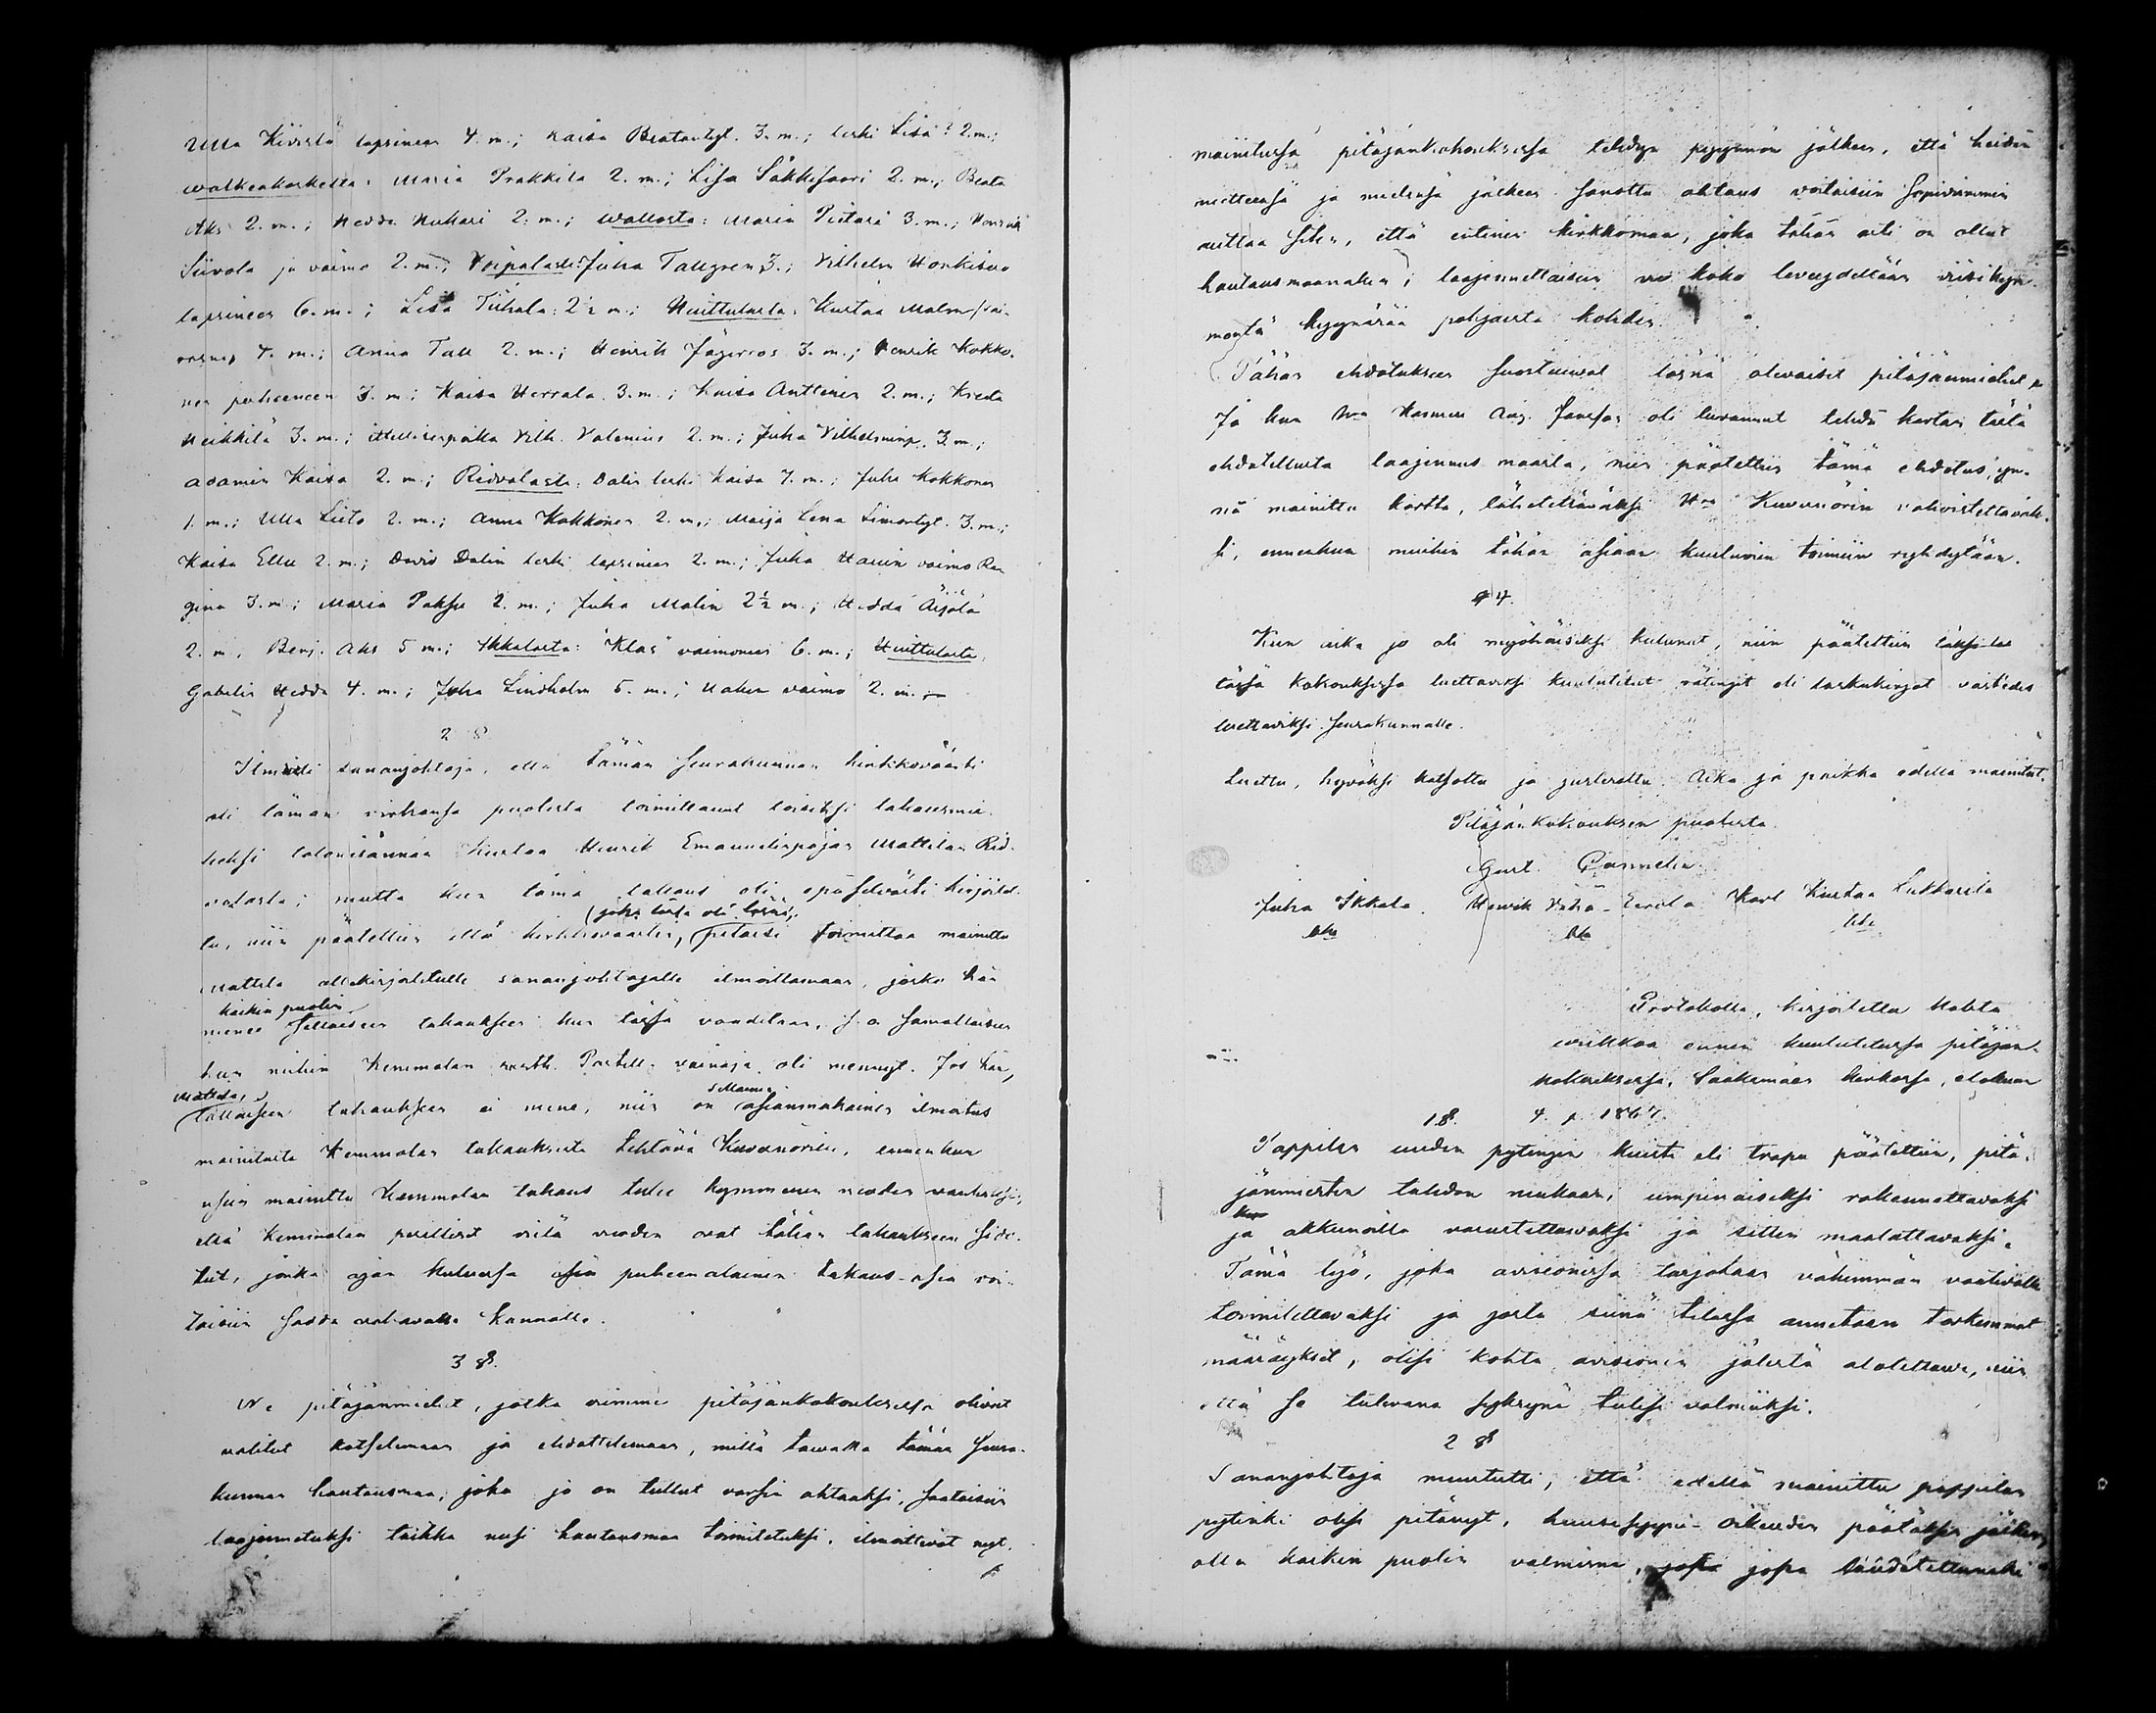 Ulla Kivistä lapsineen 4. m.; Kaisa Beatantyt. 3. m.; leski Lisa 2. m.;
Walkeakoskelta: Maria Prakkila 2. m.; Lisa Säkkisaari 2. m.; Beata
Aks 2. m.; Hedda Nukari 2. m.; Wallosta: Maria Pietari 3. m.; Henrik
Siivola ja vaimo 2. m.; Voipalasta: Juha Tallgren 3.; Vilhelm Honkisuo
lapsineen 6. m.; Lisa Tiihala: 2½ m.; Huittulasta: Kustaa Malm vai-
moineen 4. m.; Anna Tall 2. m.; Henrik Jägerroos 3. m.; Henrik Kokko-
nen perheeneen 3. m.; Kaisa Herrala 3. m.; Kaisa Anttinen 2. m.; Kreeta
Heikkilä 3. m.; Vilh. Valenius 2. m.; Juha Vilhelminp. 3. m.;
Adamin Kaisa 2. m.; Ridvalasta: Dalin leski Kaisa 7. m.; Juha Kokkonen
1. m.; Ulla Lieto 2. m.; Anna Kokkonen 2. m.; Maija Lena Simontyt. 3. m.;
Kaisa Ellu 2. m.; David Dalin leski lapsineen 2. m.; Juha vaimo Re-
gina 3. m.; Maria Paksu 2. m.; Juha Malin 2½ m.; Hedda Äijälä
2. m. Benj. Aks 5 m.; Ikkalasta: "Klas" vaimoneen 6. m.; Huittulasta,
Gabelin Hedda 4. m.; Juha Lindholm 5. m.; vaimo 2. m.
2 §
Ilmoitti sananjohtaja, että tämän seurakunnan kirkkoväärti
oli tämän virkansa puolesta toimittanut toiseksi takausmie-
heksi talonisännän Kustaa Henrik Emanuelinpojan Mattilan Rid-
valasta; mutta kun tämä takaus oli epäselvästi kirjoitet-
tu, niin päätettiin että kirkkoväärtin, (joka tässä oli läsnä), pitäisi toimittaa mainittu
Mattila allekirjoitetulle sananjohtajalle ilmoittamaan, josko hän
kaikin puolin
menee sellaiseen takaukseen kun tässä vaaditaan, s. o. samallaiseen
kun mihin Kemmolan rusth. Portell. vainaja oli mennyt. Jos hän,
Mattila,
tällaiseen takaukseen ei mene, niin on sillainen asianmukainen ilmoitus
mainitusta Kemmolan takauksesta tehtävä Kuvernörille, ennenkun
usein mainittu Kemmolan takaus tulee kymmenen vuoden vanhaksi;
että Kemmolan perilliset vielä vuoden ovat tähän takaukseen sido-
tut, jonka ajan kuluessa puheenalainen takaus-asia voi-
taisiin saada vakavalle kannalle.
3 §.
Ne pitäjänmiehet, jotka viimme pitäjänkokouksessa olivat
valitut katselemaan ja ehdottelemaan, millä tavalla tämän seura-
kunnan hautausmaa, joka jo on tullut varsin ahtaaksi, saataisiin
laajennetuksi taikka uusi hautausmaa toimitetuksi, ilmoittivat nyt,
mainitussa pitäjänkokouksessa tehdyn pyynnön jälkeen, että heidän
mittensä ja mielensä jälkeen sanottu ahtaus voitaisiin sopivimmin
auttaa siten, että entinen kirkkomaa, joka tähän asti on ollut
hautausmaanakin, laajennettaisiin koko leveydeltään viisikym-
mentä kyynärää pohjaista kohden.
Tähän ehdotukseen suostuivat läsnä olevaiset pitäjänmiehet
Ja kun Hra Aug. oli luvannut tehdä kartan tästä
ehdotellusta laajennus maasta, niin päätettiin tämä ehdotus, yn-
nä mainittu kartta, lähetettäväksi Hra Kuvernörin vahvistettavak-
si, ennenkun muihin tähän asiaan kuuluviin toimiin ryhdytään.
§ 4.
Kun aika jo oli myöhäiseksi kulunut, niin päätettiin
tässä kokouksessa luettaviksi kuulutetut rätingit eli laskukirjat vastedes
luettaviksi seurakunnalle.
Luettu, hyväksi katsottu ja justeerattu. Aika ja paikka edellä mainitut.
Pitäjänkokouksen puolesta.
Gust. Cannelin.
Juha Ikkala. Henrik Vähä-Eerola Karl Kustaa Lukkarila
Protokolla, kirjoitettu kahta
viikkoa ennen kuulutetussa pitäjän-
kokouksessa, Sääksmäen kirkossa, elokuun
4. p. 1867.
1 §.
Pappilan uuden pytingin kuisti eli trapu päätettiin, pitä-
jänmiesten tahdon mukaan, umpinaiseksi rakennettavaksi
ja akkunoilla varustettavaksi ja sitten maalattavaksi.
Tämä työ, joka avisionissa tarjotaan vähimmän vaativalle
toimitettavaksi ja josta siinä tilassa annetaan tarkemmat
määräykset, olisi kohta avisionin jälestä alotettava, niin
että se tulevana syksynä tulisi valmiiksi.
2 §
Sananjohtaja muistutti, että edellä mainittu pappilan
pytinki olisi pitänyt, huonesyyni-oikeuden päätöksen jälkeen,
olla kaikin puolin valmisna, jopa